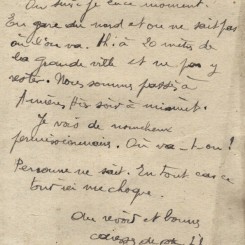 Où suis-je en ce moment.
En gare du nord et on ne sait pas
où l'on va. Hi à 20 mètres de
la grande ville et ne pas y
rester. Nous sommes passés à
Asnières hier soir à minuit.
Je vois de nombreux
permissionnaires. Où va-t-on !
Personne ne sait. En tout cas ce
tout ici me choque.
Au revoir et bonne